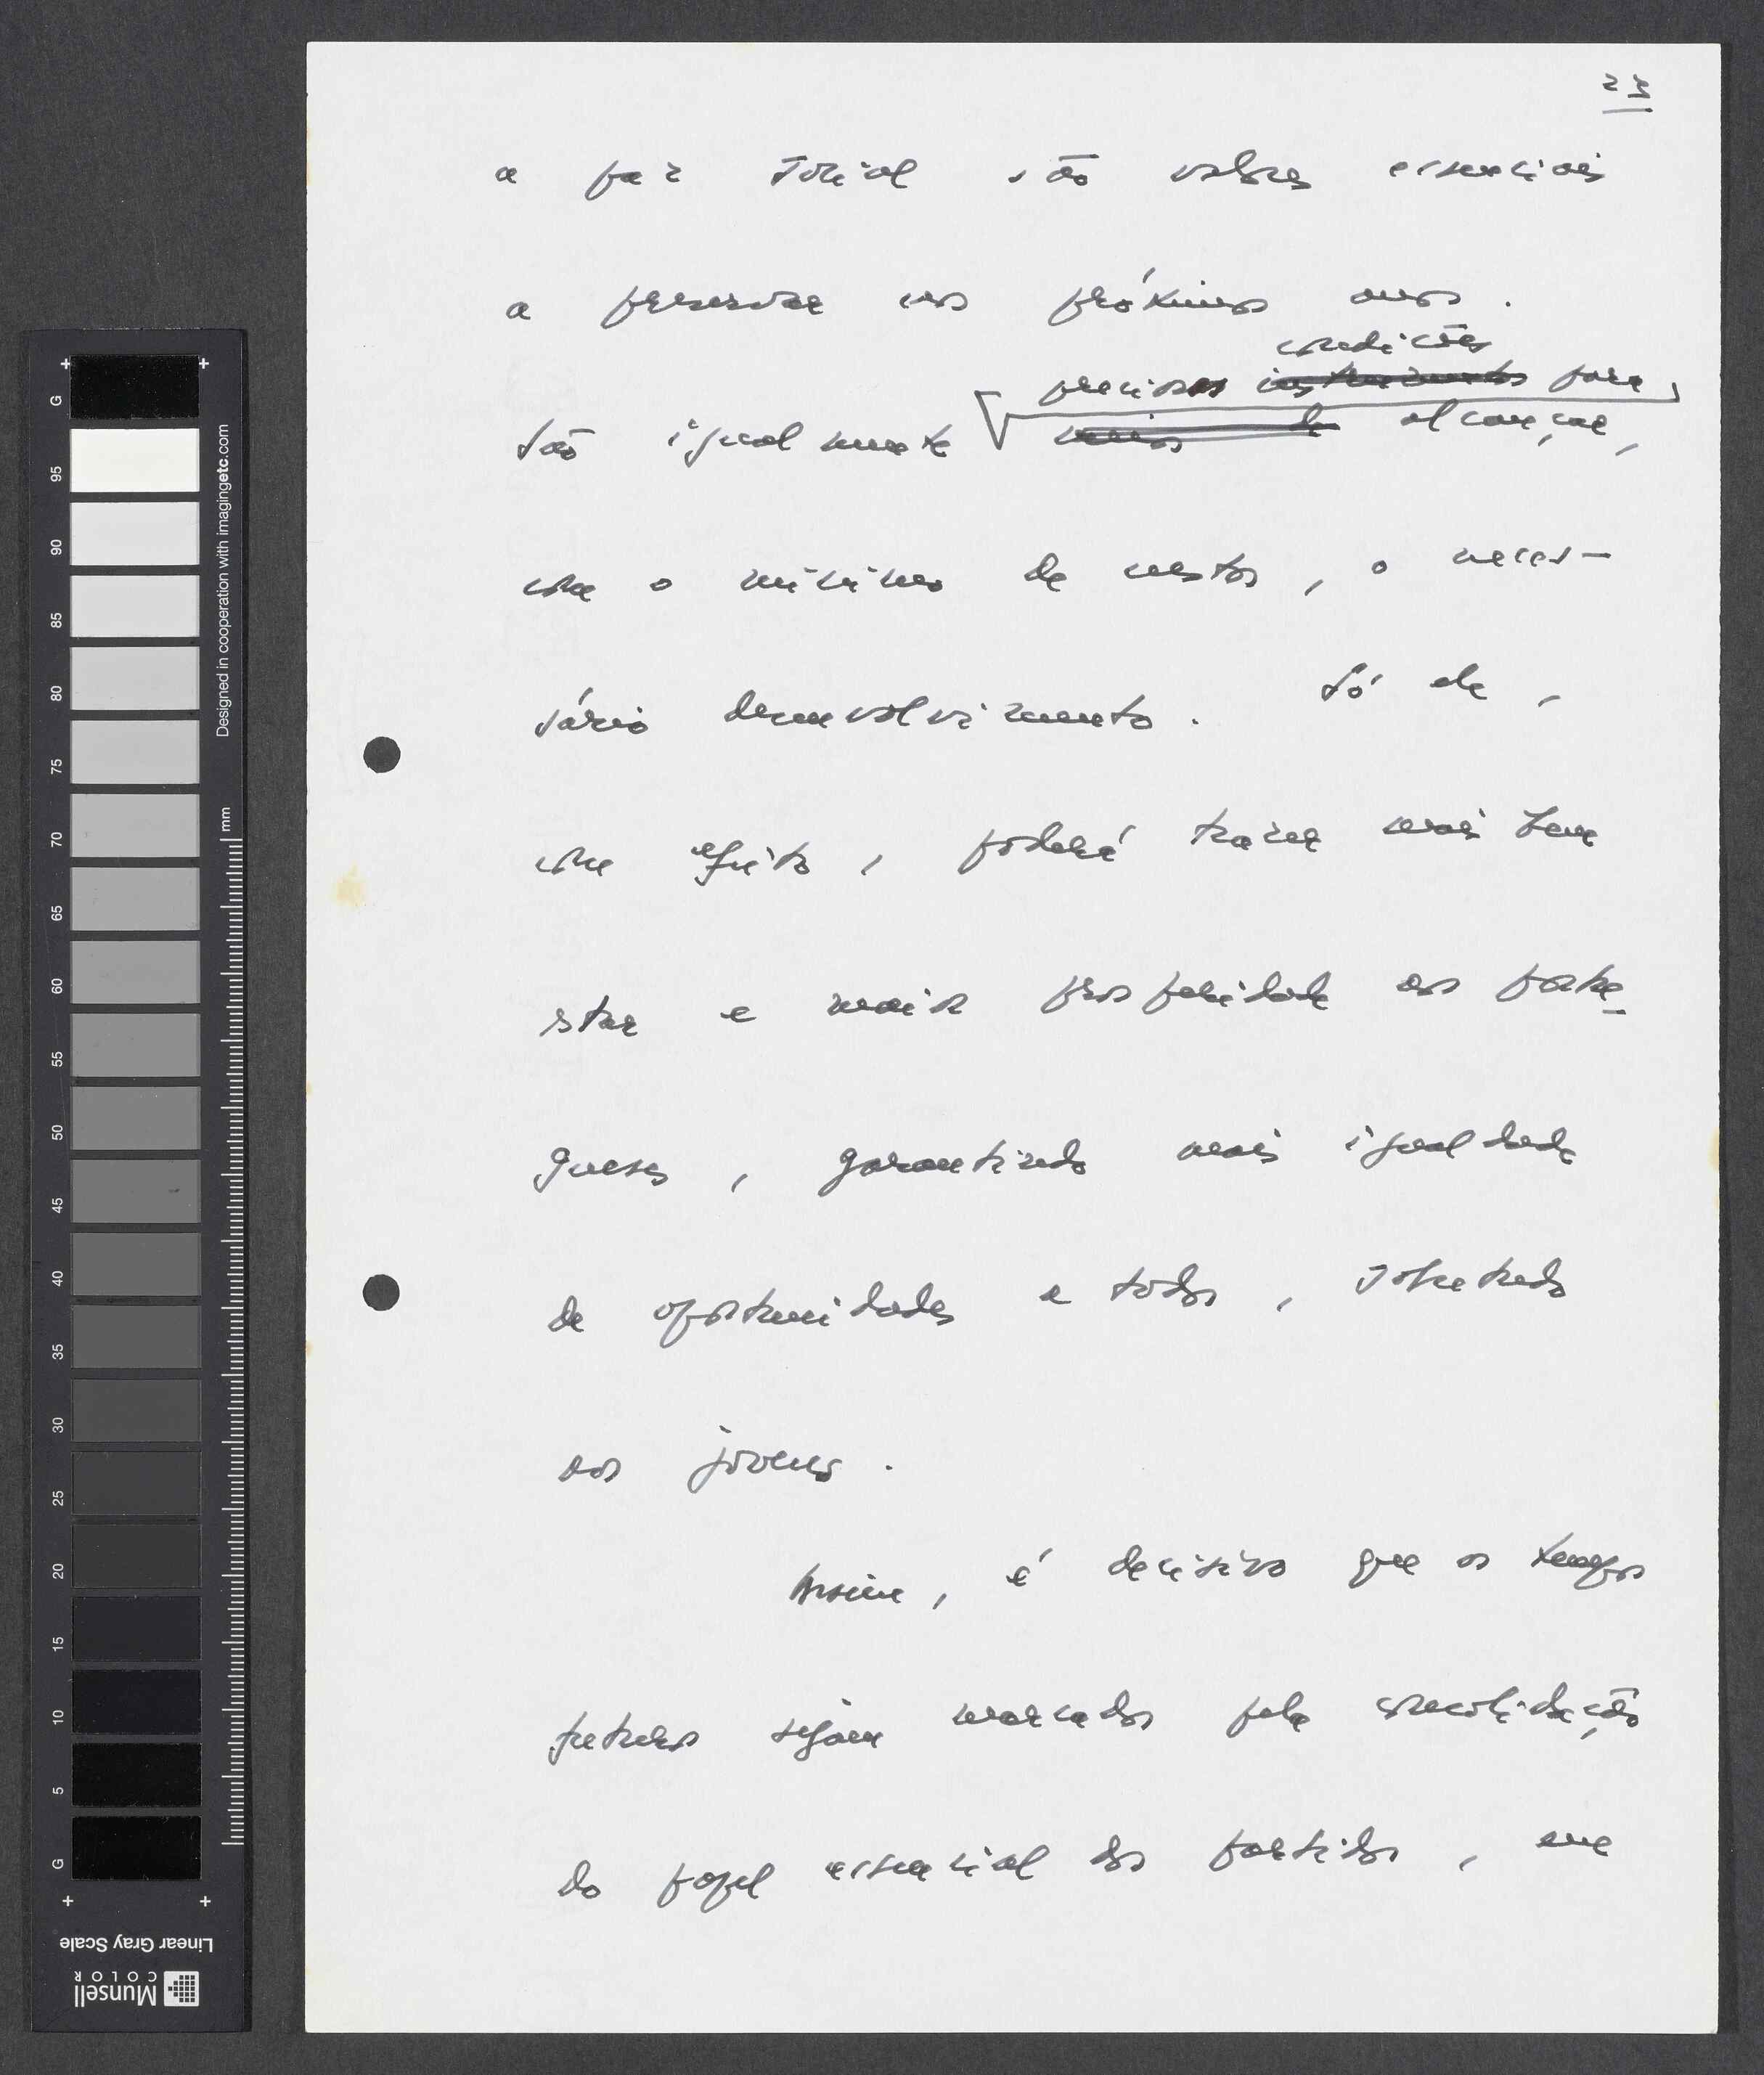 23
a paz social são valores essenciais
a preservar nos próximos anos.
condições
precisas instrumentos para
São igualmente meios de alcançar,
com o mínimo de custos, o neces-
sário desenvolvimento. Só ele,
com efeito, poderá trazer mais bem
estar e mais prosperidade aos portu-
gueses, garantindo mais igualdade
de oportunidades a todos, sobretudo
aos jovens.
Assim, é decisivo que os tempos
futuros sejam marcados pela consolidação
do papel essencial dos partidos, em
G
95
90
85
80
75
70
65
60
55
50
45
40
35
30
25
20
15
10
5
G
mm
Designed in cooperation with imagingetc.com
Linear Gray Scale
Munsell
COLOR